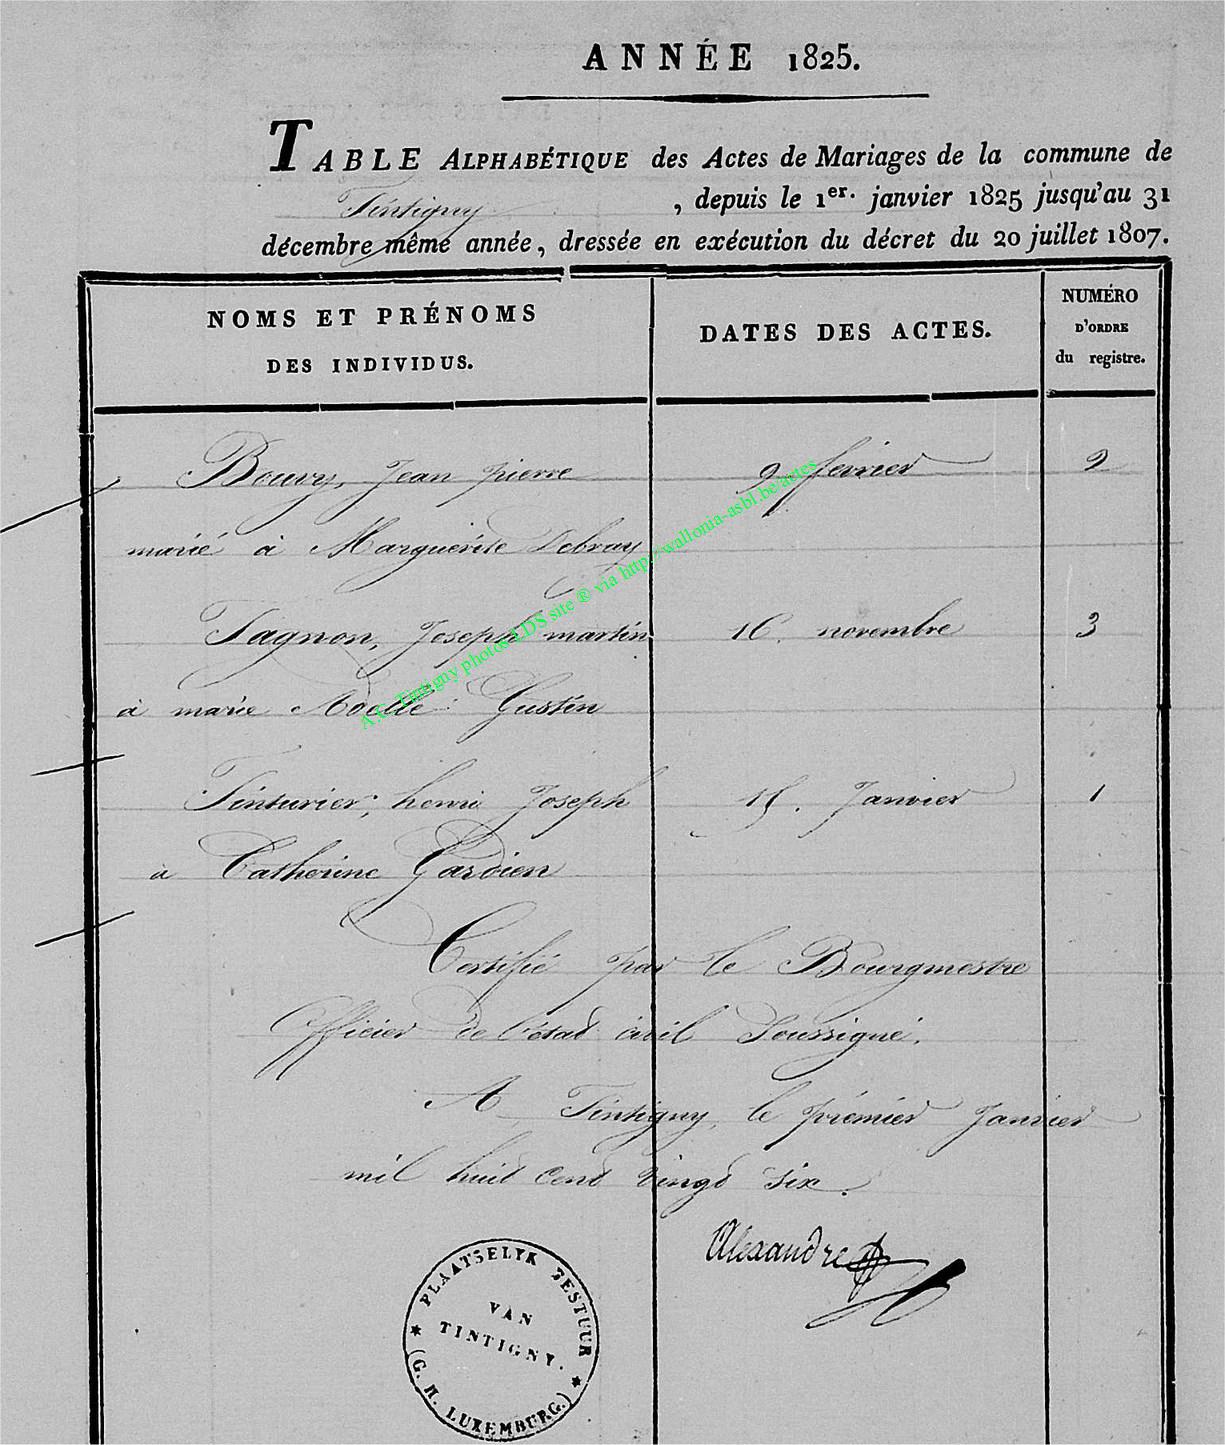 ANNÉE 1825.
TABLE ALPHABÉTIQUE des Actes de Mariages de la commune de
Tintigny , depuis le 1er. janvier 1825 jusqu'au 31
décembre même année, dressée en exécution du décret du 20 juillet 1807.
NOMS ET PRÉNOMS
DES INDIVIDUS.
DATES DES ACTES.
NUMÉRO
D'ORDRE
du registre.
Bouvy, Jean pierre 9 fevrier 2
marié à Marguérite Debray
Tagnon, Joseph martin 16. novembre 3
à marie Gustin
Tinturier, henri Joseph 15. Janvier 1
à Catherine Gardien
Certifié par le Bourgmestre
Officier de l'état civil Soussigné.
A Tintigny, le prémier Janvier
mil huit cent vingt six.
Alexandre
PLAATSELYK BESTUUR
VAN
TINTIGNY.
(G. H. LUXEMBURG.)
A.C. Tintigny photos LDS site ® via http://wallonia-asbl.be/actes